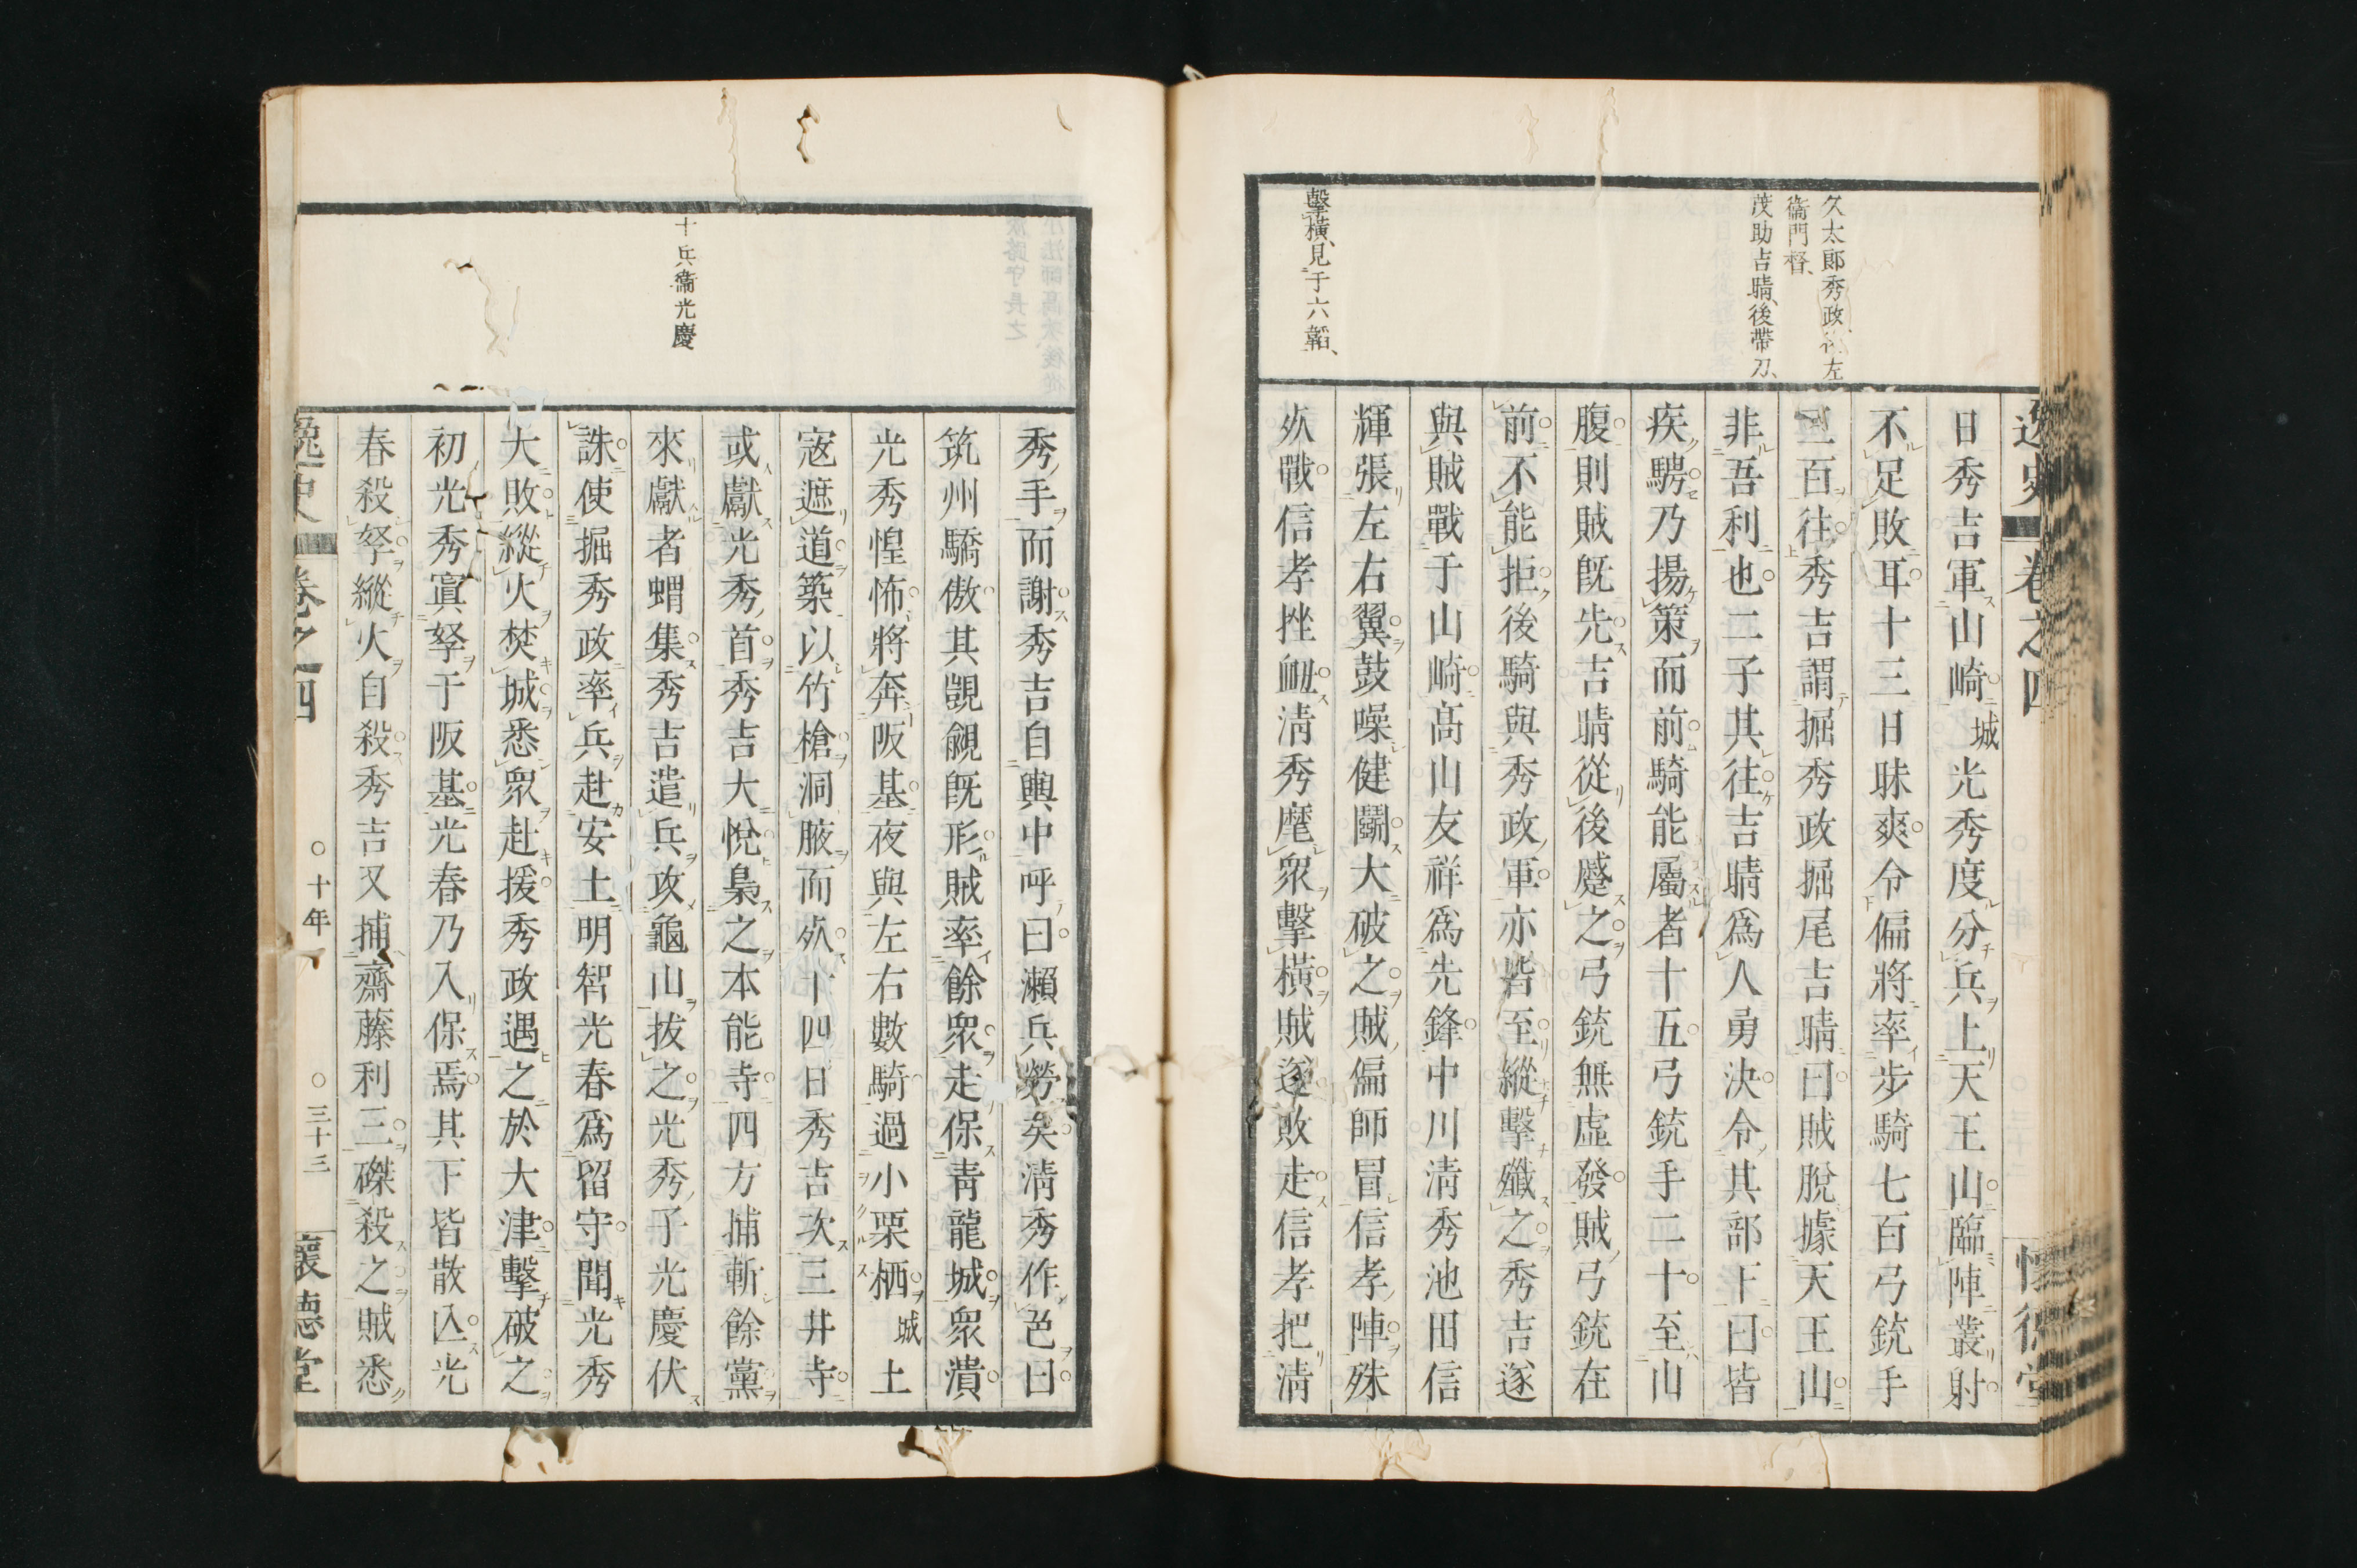 久太郎秀政後左
衞門督、
茂助吉晴、後帶刀、
擊橫、見于六韜、
逸史 卷之四
日秀吉軍山崎城光秀度分兵上天王山臨陣叢射
不足敗耳十三日昧爽令偏將率步騎七百弓銃手
三百往秀吉謂掘秀政掘尾吉晴曰賊脫據天王山
非吾利也二子其往吉晴爲人勇決令其部下曰皆
疾騁乃揚策而前騎能屬者十五弓銃手二十至山
腹則賊旣先吉晴從後蹙之弓銃無虛發賊弓銃在
前不能拒後騎與秀政軍亦皆至縱擊殲之秀吉遂
與賊戰于山崎高山友祥爲先鋒中川淸秀池田信
輝張左右翼鼓噪健鬭大破之賊偏師冒信孝陣殊
死戰信孝挫衂淸秀麾衆擊橫賊遂敗走信孝把淸
十兵衞光慶
秀手而謝秀吉自輿中呼曰瀨兵勞矣淸秀作色曰
筑州驕傲其覬覦旣形賊率餘衆走保靑龍城衆潰
光秀惶怖將奔阪基夜與左右數騎過小栗栖城土
寇遮道築以竹槍洞腋而死十四日秀吉次三井寺
或獻光秀首秀吉大悅梟之本能寺四方捕斬餘黨
來獻者蝟集秀吉遣兵攻龜山拔之光秀子光慶伏
誅使掘秀政率兵赴安土明智光春爲留守聞光秀
大敗縱火焚城悉衆赴援秀政遇之於大津擊破之
初光秀寘孥于阪基光春乃入保焉其下皆散亾光
春殺孥縱火自殺秀吉又捕齋藤利三磔殺之賊悉
逸史 卷之四 ○十年 ○三十三 懷德堂